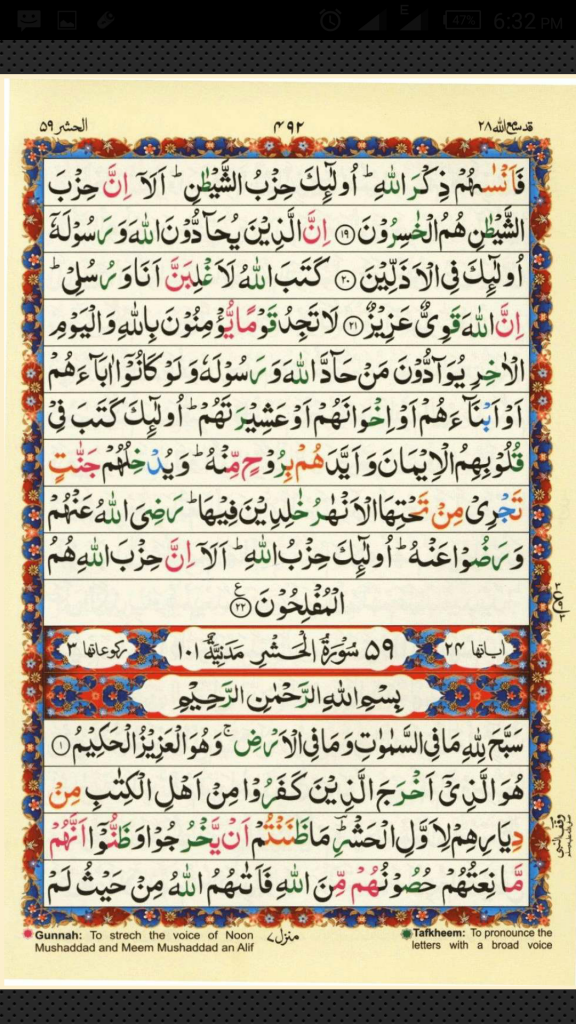 E 47% 6:32 PM
قدسمع الله ۲۸
۴۹۲
الحشر ۵۹
فَاَنْسٰىهُمْ ذِكْرَ اللّٰهِ ؕ اُولٰٓئِكَ حِزْبُ الشَّيْطٰنِ ؕ اَلَاۤ اِنَّ حِزْبَ
الشَّيْطٰنِ هُمُ الْخٰسِرُوْنَ ﴿۱۹﴾ اِنَّ الَّذِيْنَ يُحَآدُّوْنَ اللّٰهَ وَرَسُوْلَهٗۤ
اُولٰٓئِكَ فِي الْاَذَلِّيْنَ ﴿۲۰﴾ كَتَبَ اللّٰهُ لَاَغْلِبَنَّ اَنَا وَرُسُلِيْ ؕ
اِنَّ اللّٰهَ قَوِيٌّ عَزِيْزٌ ﴿۲۱﴾ لَا تَجِدُ قَوْمًا يُّؤْمِنُوْنَ بِاللّٰهِ وَالْيَوْمِ
الْاٰخِرِ يُوَآدُّوْنَ مَنْ حَآدَّ اللّٰهَ وَرَسُوْلَهٗ وَلَوْ كَانُوْۤا اٰبَآءَهُمْ
اَوْ اَبْنَآءَهُمْ اَوْ اِخْوَانَهُمْ اَوْ عَشِيْرَتَهُمْ ؕ اُولٰٓئِكَ كَتَبَ فِيْ
قُلُوْبِهِمُ الْاِيْمَانَ وَاَيَّدَهُمْ بِرُوْحٍ مِّنْهُ ؕ وَيُدْخِلُهُمْ جَنّٰتٍ
تَجْرِيْ مِنْ تَحْتِهَا الْاَنْهٰرُ خٰلِدِيْنَ فِيْهَا ؕ رَضِيَ اللّٰهُ عَنْهُمْ
وَرَضُوْا عَنْهُ ؕ اُولٰٓئِكَ حِزْبُ اللّٰهِ ؕ اَلَاۤ اِنَّ حِزْبَ اللّٰهِ هُمُ
الْمُفْلِحُوْنَ ﴿۲۲﴾ ع
اٰياتها ۲۴ ۵۹ سُوْرَةُ الْحَشْرِ مَدَنِيَّةٌ ۱۰۱ ركوعاتها ۳
بِسْمِ اللّٰهِ الرَّحْمٰنِ الرَّحِيْمِ
سَبَّحَ لِلّٰهِ مَا فِي السَّمٰوٰتِ وَمَا فِي الْاَرْضِ ۚ وَهُوَ الْعَزِيْزُ الْحَكِيْمُ ﴿۱﴾
هُوَ الَّذِيْۤ اَخْرَجَ الَّذِيْنَ كَفَرُوْا مِنْ اَهْلِ الْكِتٰبِ مِنْ
دِيَارِهِمْ لِاَوَّلِ الْحَشْرِ ؔ مَا ظَنَنْتُمْ اَنْ يَّخْرُجُوْا وَظَنُّوْۤا اَنَّهُمْ
مَّا نِعَتُهُمْ حُصُوْنُهُمْ مِّنَ اللّٰهِ فَاَتٰىهُمُ اللّٰهُ مِنْ حَيْثُ لَمْ
Gunnah: To strech the voice of Noon
Mushaddad and Meem Mushaddad an Alif
منزل ۷
Tafkheem: To pronounce the
letters with a broad voice